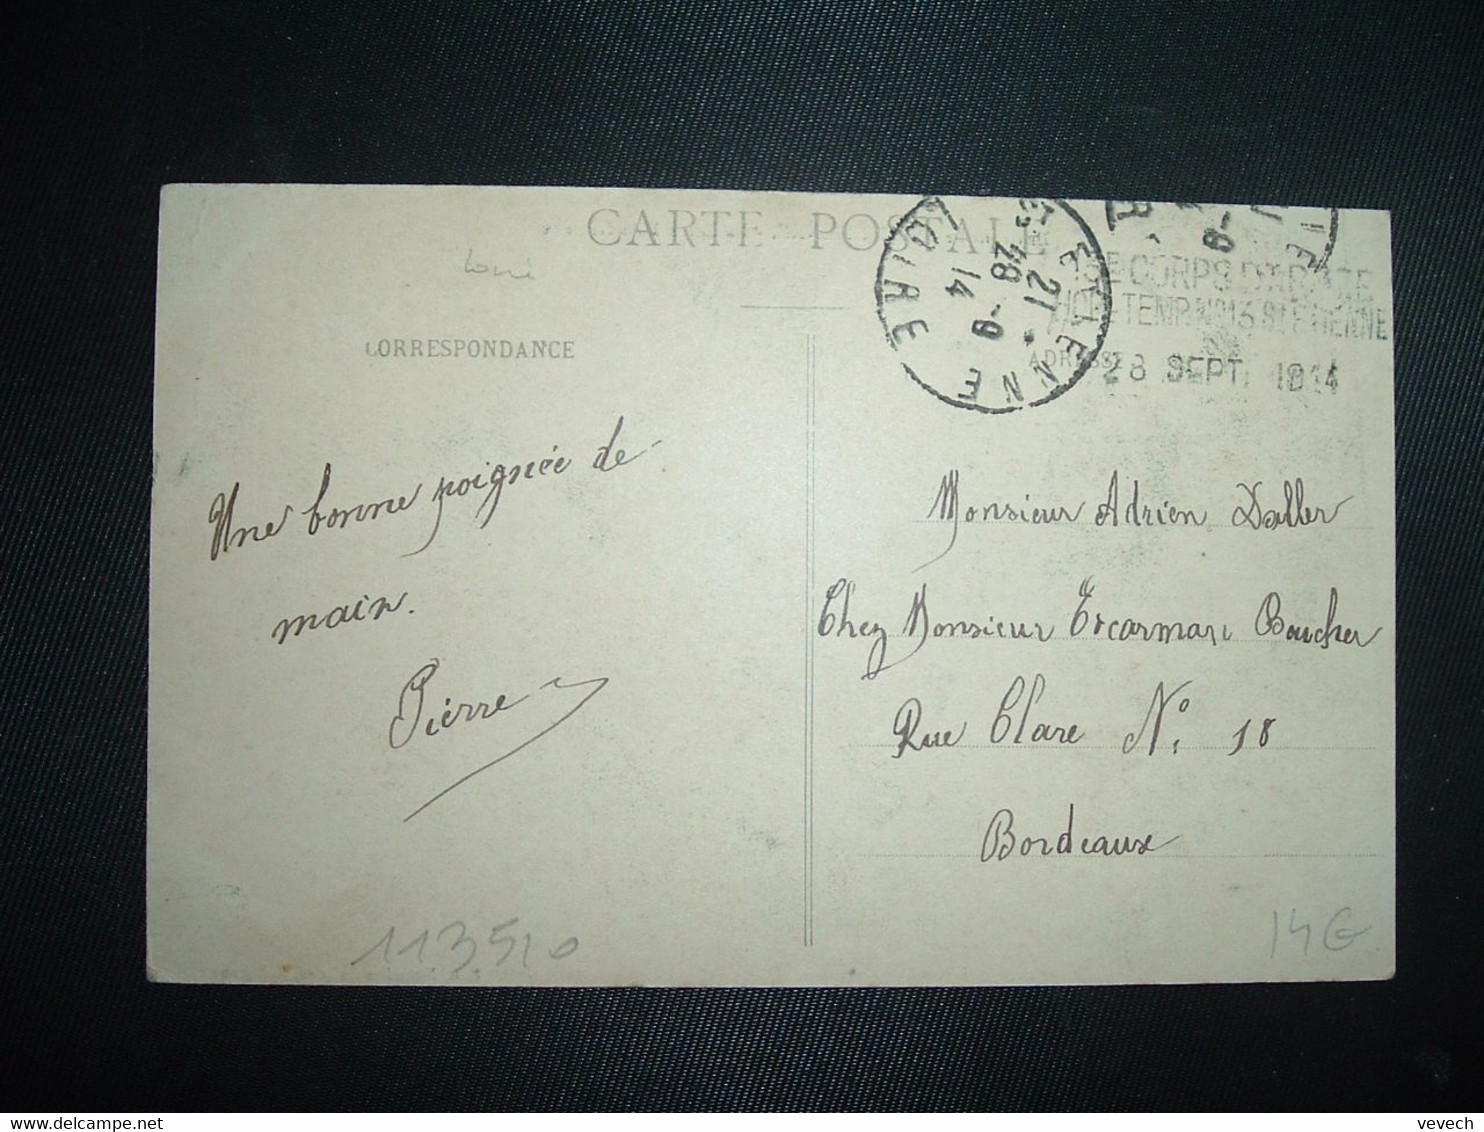 CARTE POSTALE
Loire
CORRESPONDANCE
ADRESSE
13E CORPS D'ARMEE
HOP. TEMP. No 16 St ETIENNE
28 SEPT. 1914
ST ETIENNE
LOIRE
21
28 -9
14
Une bonne poignée de
main.
Pierre
Monsieur Adrien Daller
Chez Monsieur Escarmant Boucher
Rue Clare No. 18
Bordeaux
113510
14G
vevech